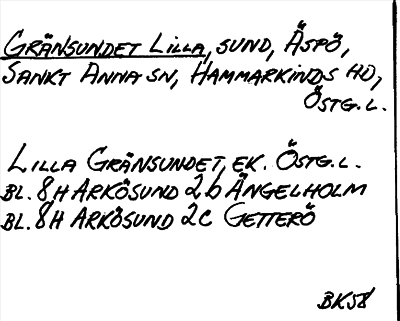 GRÄNSUNDET LILLA, SUND, ÄSPÖ,
SANKT ANNA SN, HAMMARKINDS HD,
ÖSTG.L.
LILLA GRÄNSUNDET, EK. ÖSTG.L.
BL. 8H ARKÖSUND 2b ÄNGELHOLM
BL. 8H ARKÖSUND 2C GETTERÖ
BK58